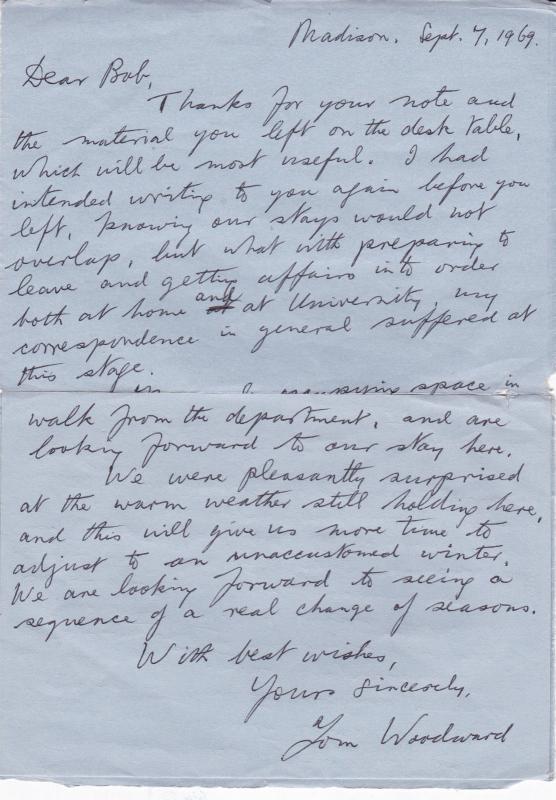 Madison. Sept. 7, 1969.
Dear Bob,
Thanks for your note and
the material you left on the desk table,
which will be most useful. I had
intended writing to you again before you
left, knowing our stays would not
overlap, but what with preparing to
leave and getting affairs into order
both at home and at University, my
correspondence in general suffered at
this stage.
space in
walk from the department, and are
looking forward to our stay here.
We were pleasantly surprised
at the warm weather still holding here,
and this will give us more time to
adjust to an unaccustomed winter.
We are looking forward to seeing a
sequence of a real change of seasons.
With best wishes,
Yours sincerely,
Tom Woodward